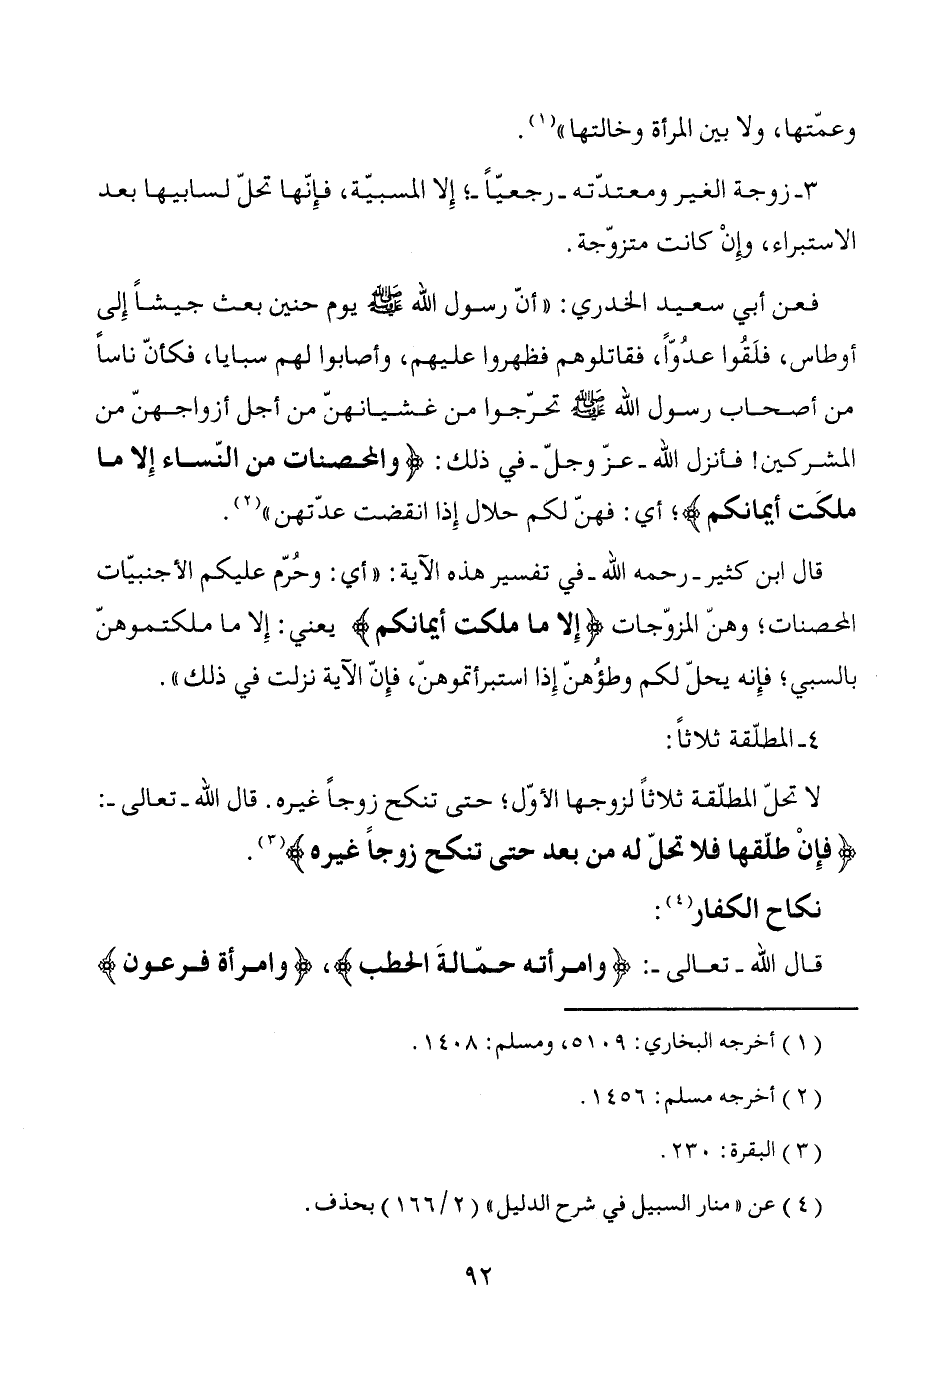 وعمّتها، ولا بين المرأة وخالتها»(١).
٣ـ زوجة الغير ومعتدّته ـ رجعيّاً ـ؛ إلا المسبيّة، فإنّها تحلّ لسابيها بعد
الاستبراء، وإنْ كانت متزوّجة.
فعن أبي سعيد الخدري: «أنّ رسول الله ﷺ يوم حنين بعث جيشاً إلى
أوطاس، فلَقُوا عدُوّاً، فقاتلوهم فظهروا عليهم، وأصابوا لهم سبايا، فكأنّ ناساً
من أصحاب رسول الله ﷺ تحرّجوا من غشيانهنّ من أجل أزواجهنّ من
المشركين! فأنزل الله ـ عزّ وجلّ ـ في ذلك: ﴿والمحصنات من النّساء إلا ما
ملكَت أيمانكم﴾؛ أي: فهنّ لكم حلال إذا انقضت عدّتهن»(٢).
قال ابن كثير ـ رحمه الله ـ في تفسير هذه الآية: «أي: وحُرّم عليكم الأجنبيّات
المحصنات؛ وهنّ المزوّجات ﴿إلا ما ملكت أيمانكم﴾ يعني: إلا ما ملكتموهنّ
بالسبي؛ فإنه يحلّ لكم وطؤُهنّ إذا استبرأتموهنّ، فإنّ الآية نزلت في ذلك».
٤ـ المطلّقة ثلاثاً:
لا تحلّ المطلّقة ثلاثاً لزوجها الأوّل؛ حتى تنكح زوجاً غيره. قال الله ـ تعالى ـ:
﴿فإنْ طلّقها فلا تحلّ له من بعد حتى تنكح زوجاً غيره﴾(٣).
نكاح الكفار(٤):
قال الله ـ تعالى ـ: ﴿وامرأته حمّالةَ الحطب﴾، ﴿وامرأة فرعون﴾
(١) أخرجه البخاري: ٥١٠٩، ومسلم: ١٤٠٨.
(٢) أخرجه مسلم: ١٤٥٦.
(٣) البقرة: ٢٣٠.
(٤) عن «منار السبيل في شرح الدليل» (٢/١٦٦) بحذف.
٩٢